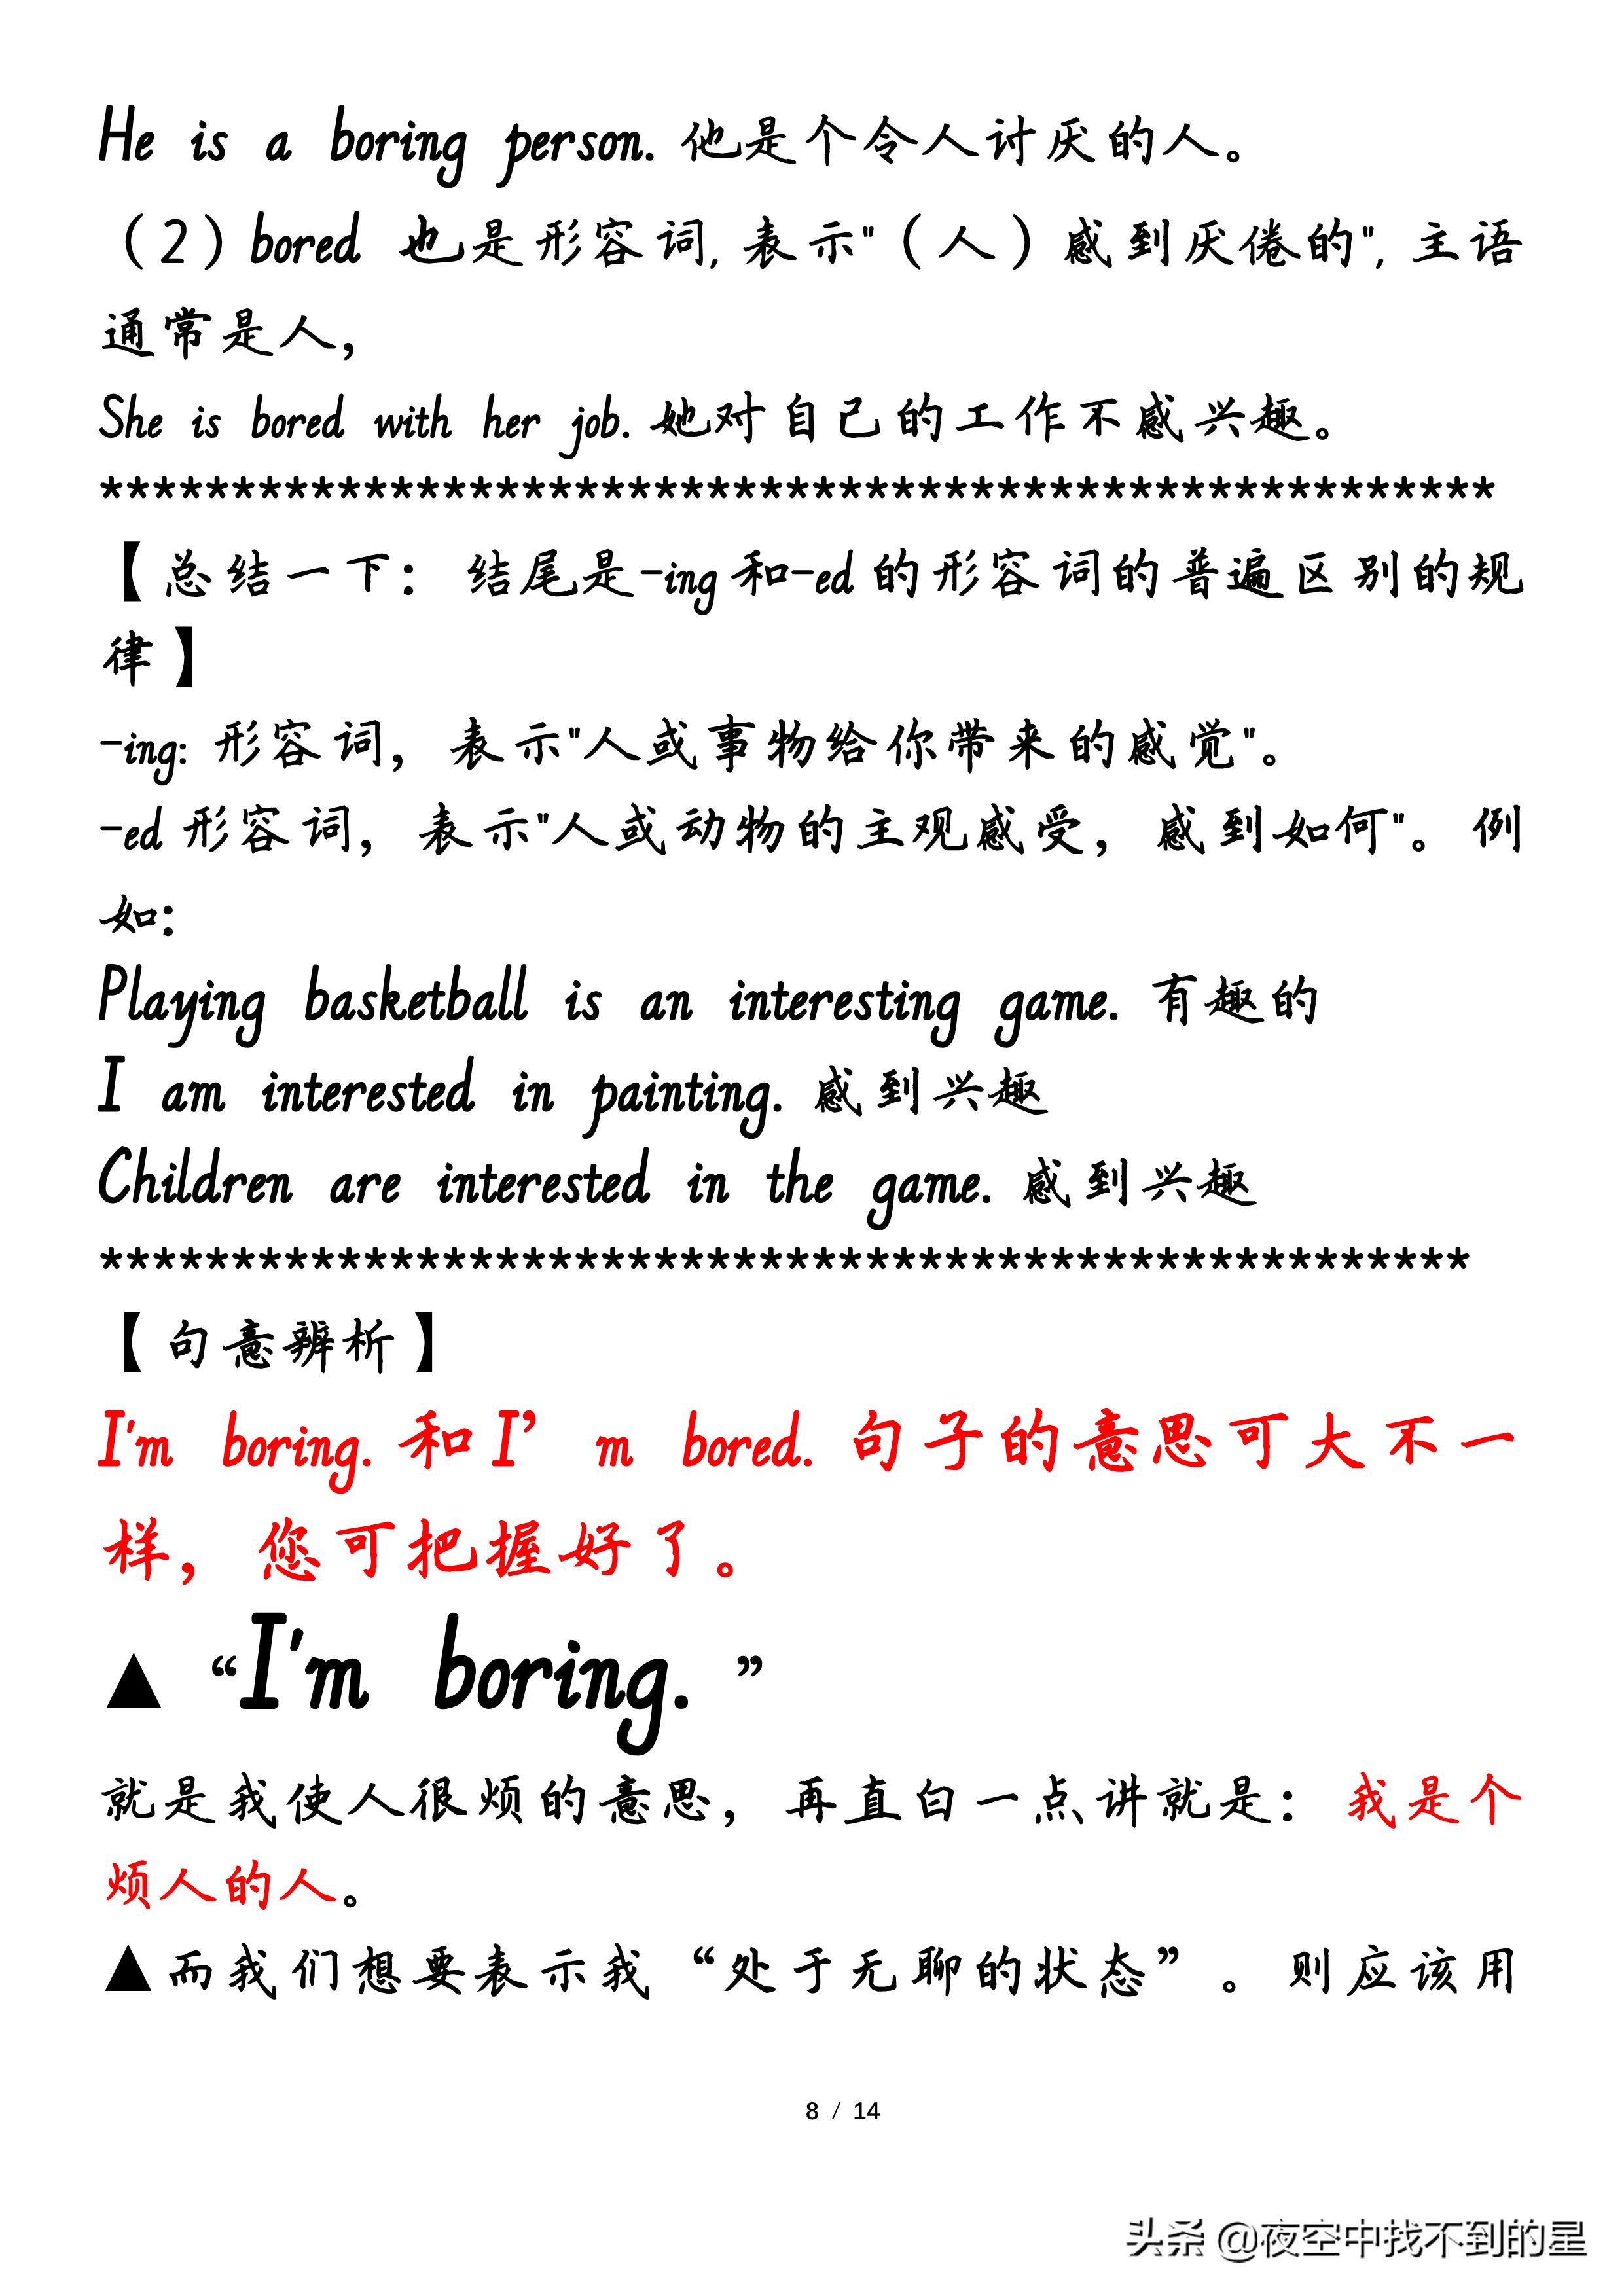 He is a boring person. 他是个令人讨厌的人。
（2）bored 也是形容词, 表示"（人）感到厌倦的", 主语
通常是人，
She is bored with her job. 她对自己的工作不感兴趣。
*****************************************************
【总结一下： 结尾是-ing 和-ed 的形容词的普遍区别的规
律】
-ing: 形容词，表示"人或事物给你带来的感觉"。
-ed 形容词，表示"人或动物的主观感受，感到如何"。例
如:
Playing basketball is an interesting game. 有趣的
I am interested in painting. 感到兴趣
Children are interested in the game. 感到兴趣
****************************************************
【句意辨析】
I'm boring. 和 I’m bored. 句子的意思可大不一
样，您可把握好了。
▲ “I'm boring. ”
就是我使人很烦的意思，再直白一点讲就是：我是个
烦人的人。
▲而我们想要表示我“处于无聊的状态”。则应该用
8 / 14
头条 @夜空中找不到的星